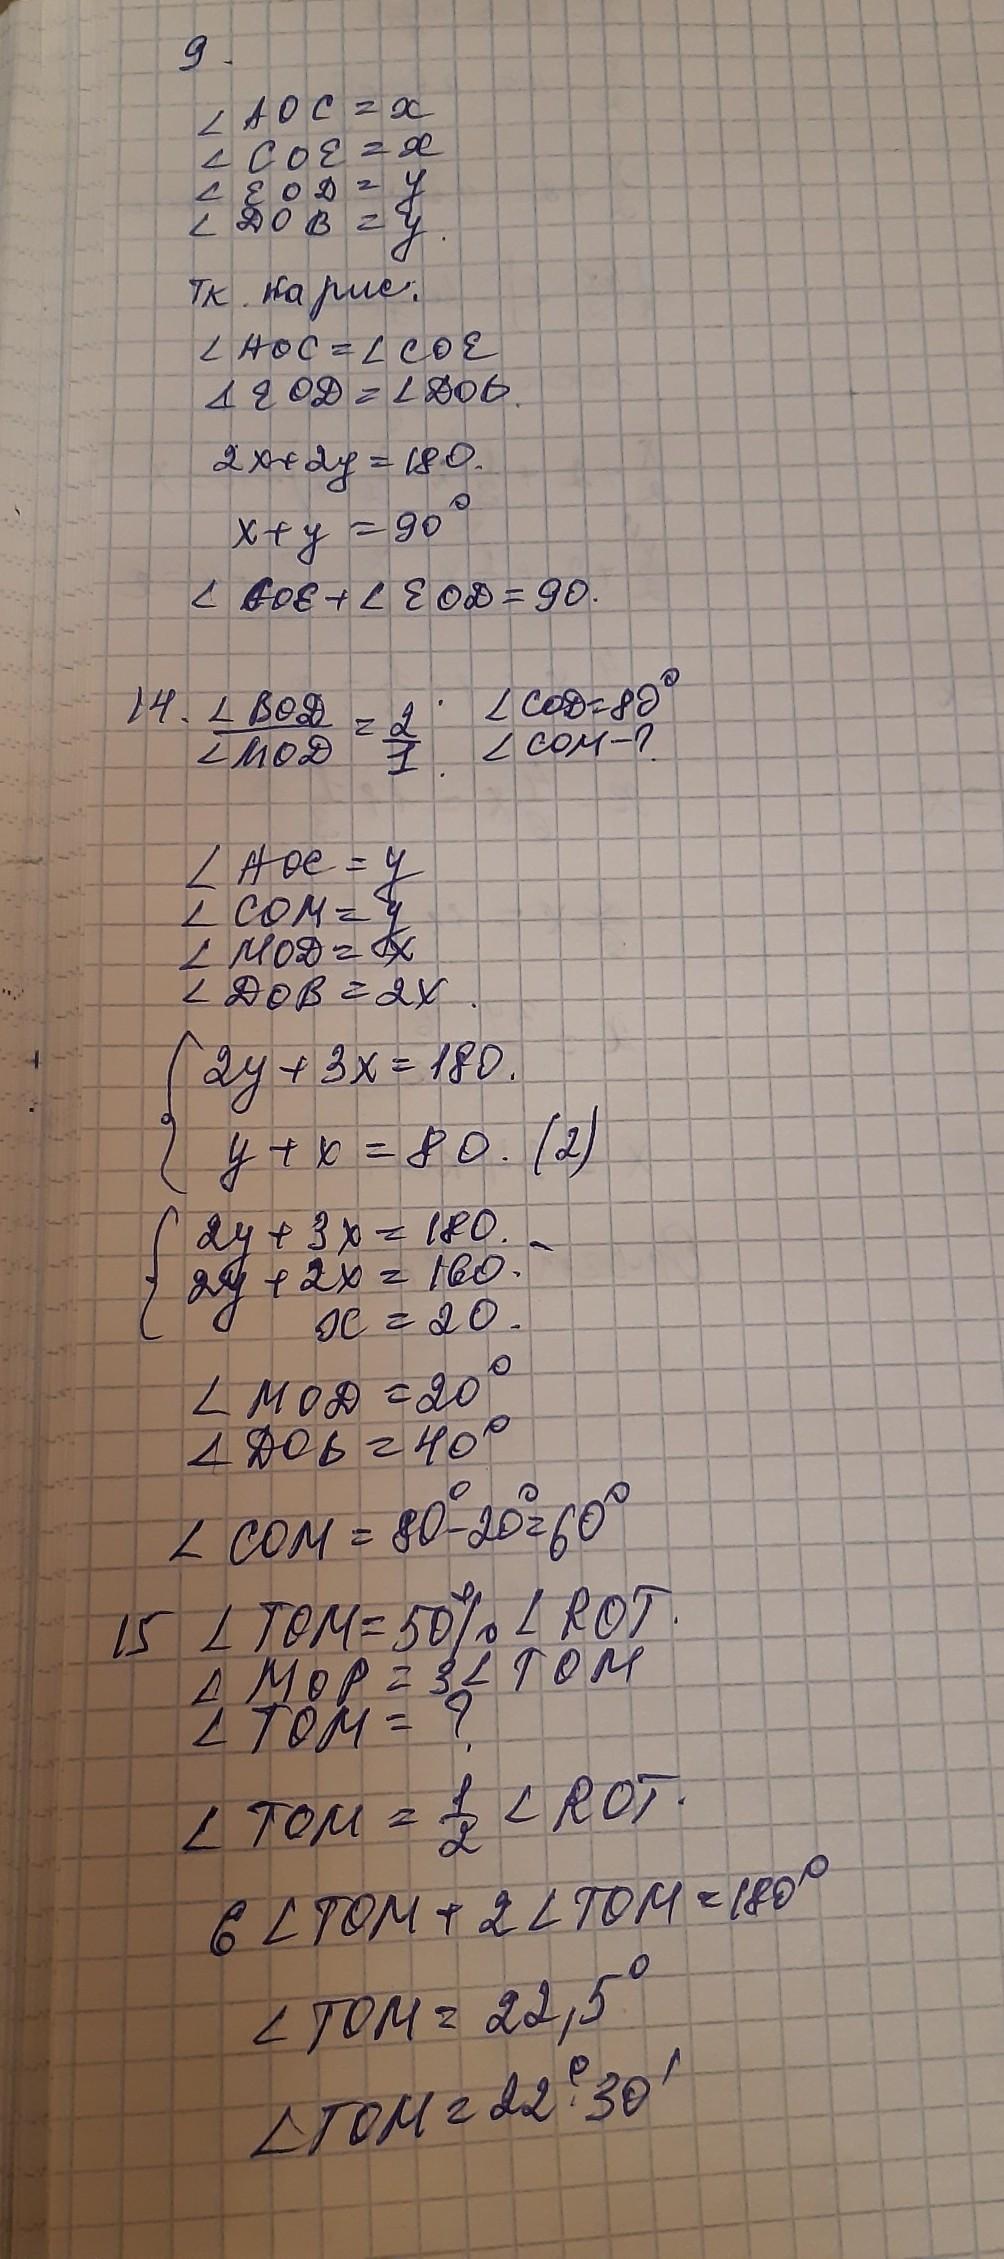 9.
∠AOC = x
∠COE = x
∠EOD = y
∠DOB = y.
Тк. на рис.
∠AOC = ∠COE
∠EOD = ∠DOB.
2x+2y=180.
x+y = 90°
∠COE + ∠EOD = 90.
14. ∠BOD / ∠MOD = 2/1. ∠COD=80°
∠COM-?
∠AOC = y
∠COM = y
∠MOD = x
∠DOB = 2x.
{ 2y + 3x = 180.
y + x = 80. (2)
{ 2y + 3x = 180. -
2y + 2x = 160.
x = 20.
∠MOD = 20°
∠DOB = 40°
∠COM = 80°-20°=60°
15 ∠TOM = 50% ∠ROT.
∠MOP = 3∠TOM
∠TOM = ?
∠TOM = 1/2 ∠ROT.
6∠TOM + 2∠TOM = 180°
∠TOM = 22,5°
∠TOM = 22°30'